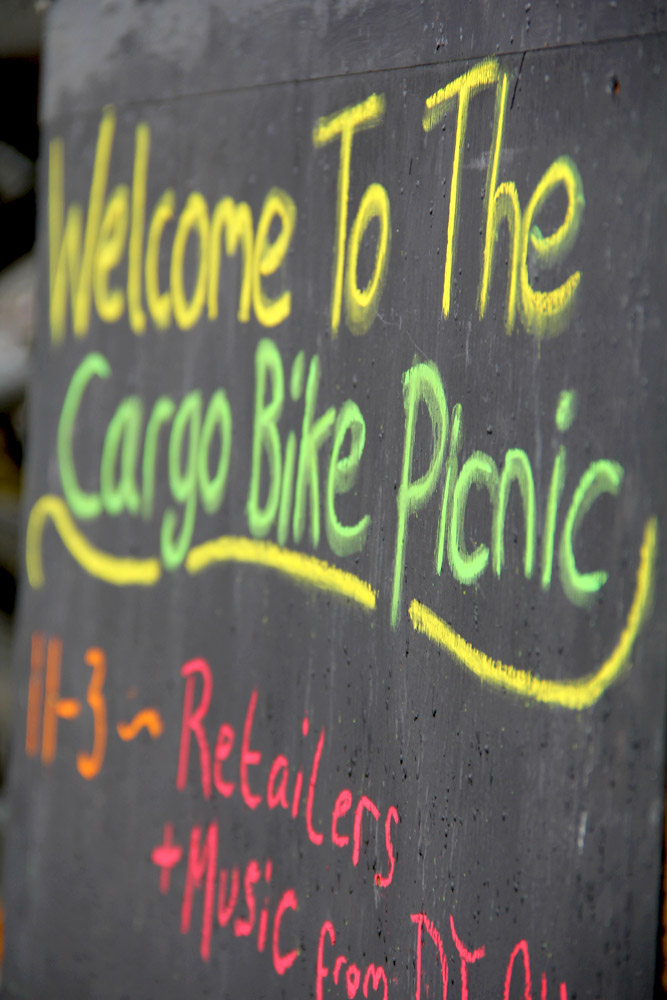 Welcome To The
Cargo Bike Picnic
11-3 ~ Retailers
+ Music from